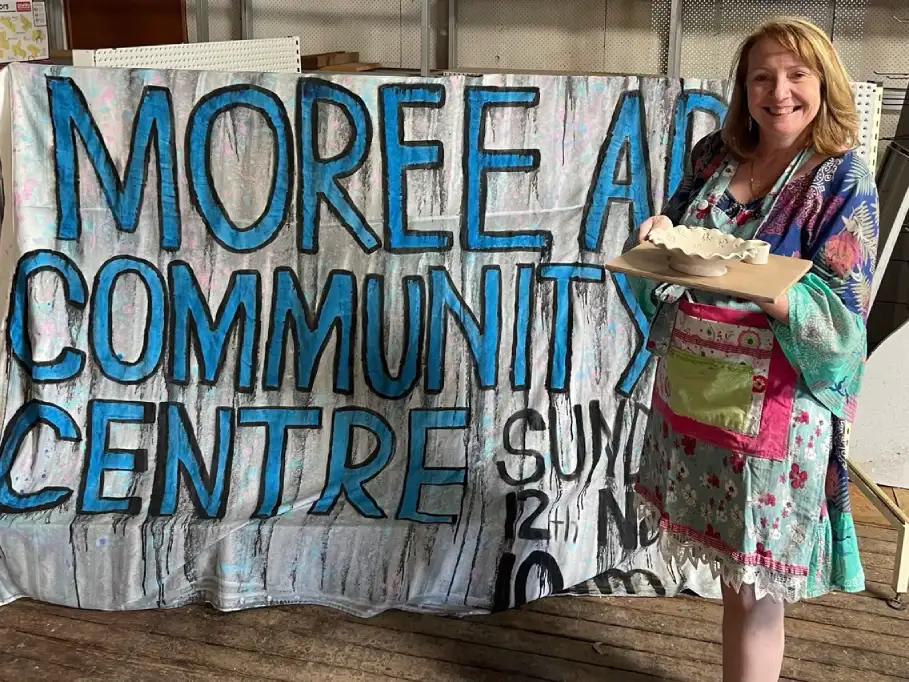 MOREE AD
COMMUNITY
CENTRE
SUND
12TH N
10